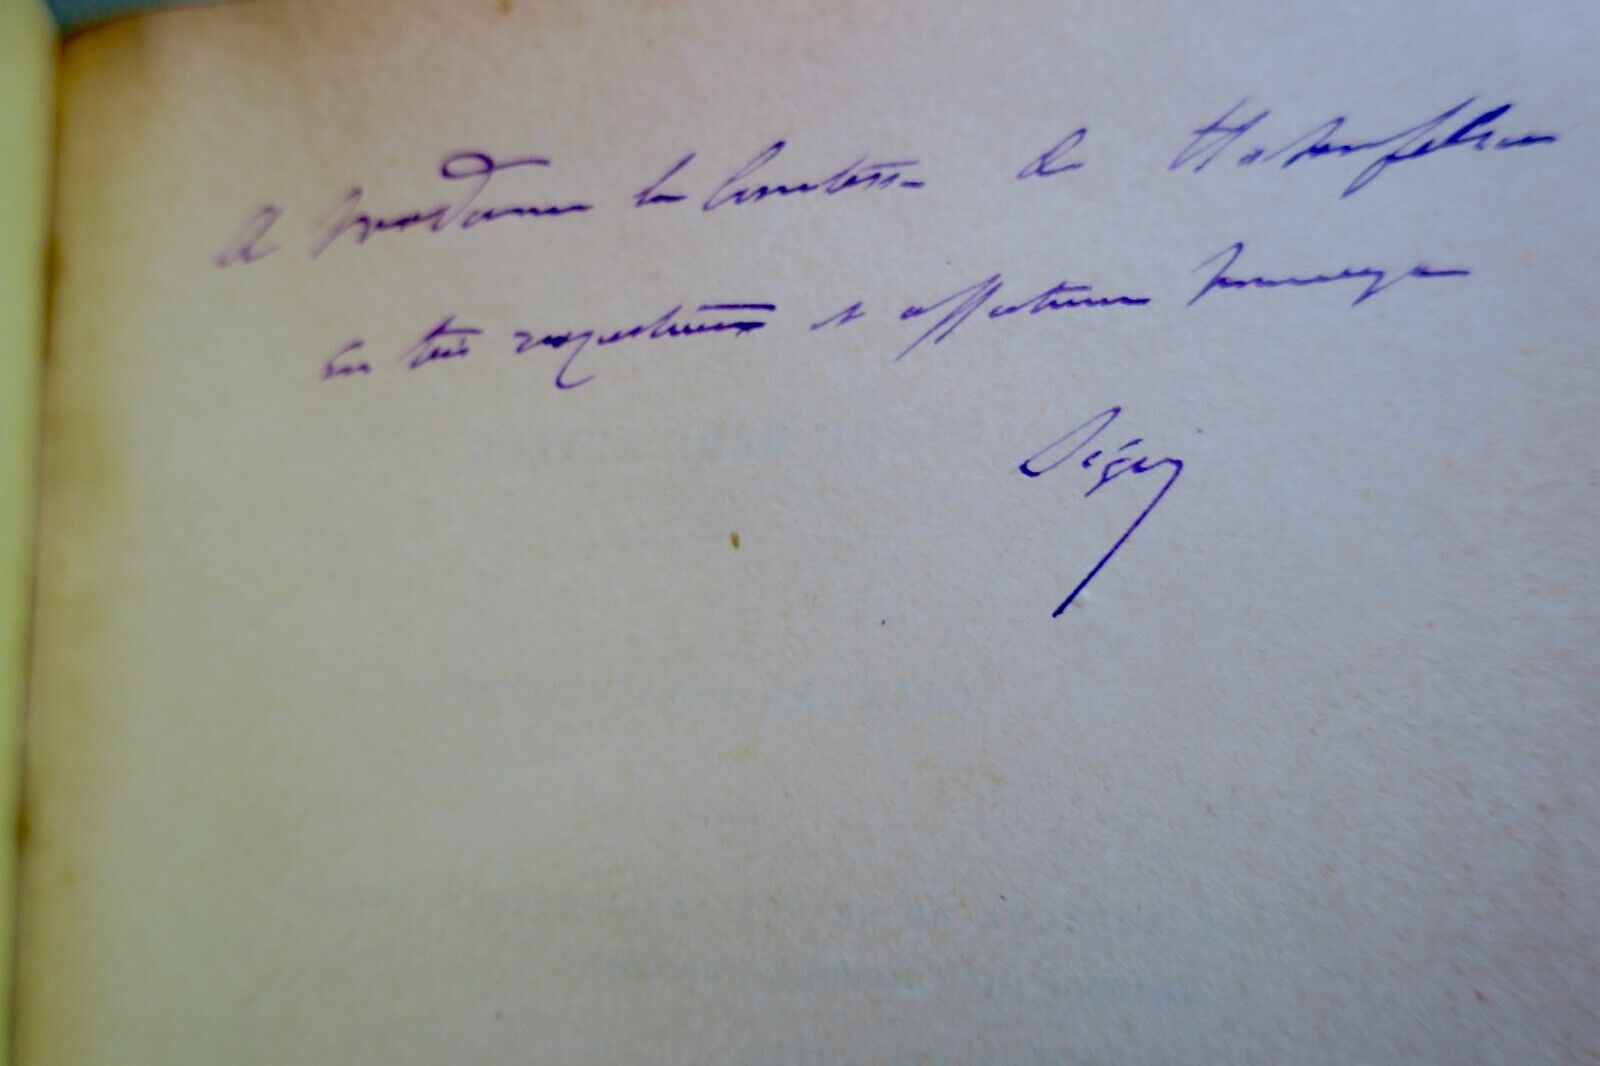 A Madame la Comtesse de Hohenfelsen
en très respectueux et affectueux hommage
Ségur